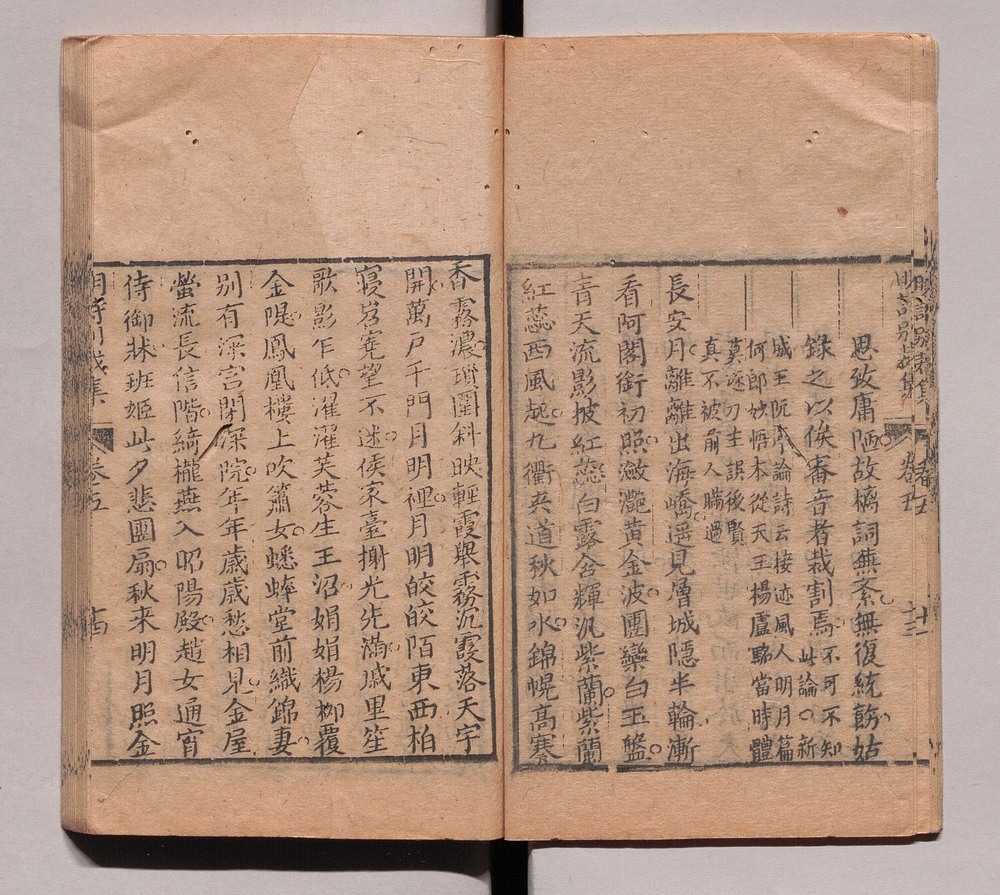 明詩別裁集 卷五 十三
思致庸陋故摛詞蕪紊無復統飭姑
錄之以俟審音者裁割焉 此論不可不知 新
城王阮亭論詩云接迹風人明月篇
何郎妙悟本從天王楊盧駱當時體
莫逐刀圭誤後賢
真不被前人瞞過
長安月離離出海嶠遥見層城隱半輪漸
看阿閣銜初照瀲灧黄金波團欒白玉盤
青天流影披紅蕊白露含輝汎紫蘭紫蘭
紅蕊西風起九衢夾道秋如水錦幌高褰
香霧濃瑣闈斜映輕霞舉霧沉霞落天宇
開萬戸千門月明裡月明皎皎陌東西柏
寢岧嶤望不迷侯家臺榭光先滿戚里笙
歌影乍低濯濯芙蓉生玉沼娟娟楊柳覆
金隄鳳凰樓上吹簫女蟋蟀堂前織錦妻
别有深宮閉深院年年歳歳愁相見金屋
螢流長信階綺櫳燕入昭陽殿趙女通宵
侍御牀班姬此夕悲團扇秋来明月照金
明詩別裁集 卷五 十四